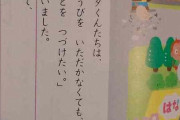 タくんたちは、
うびを いただかなくても、
とを つづけたい。」
いました。
て、
はな